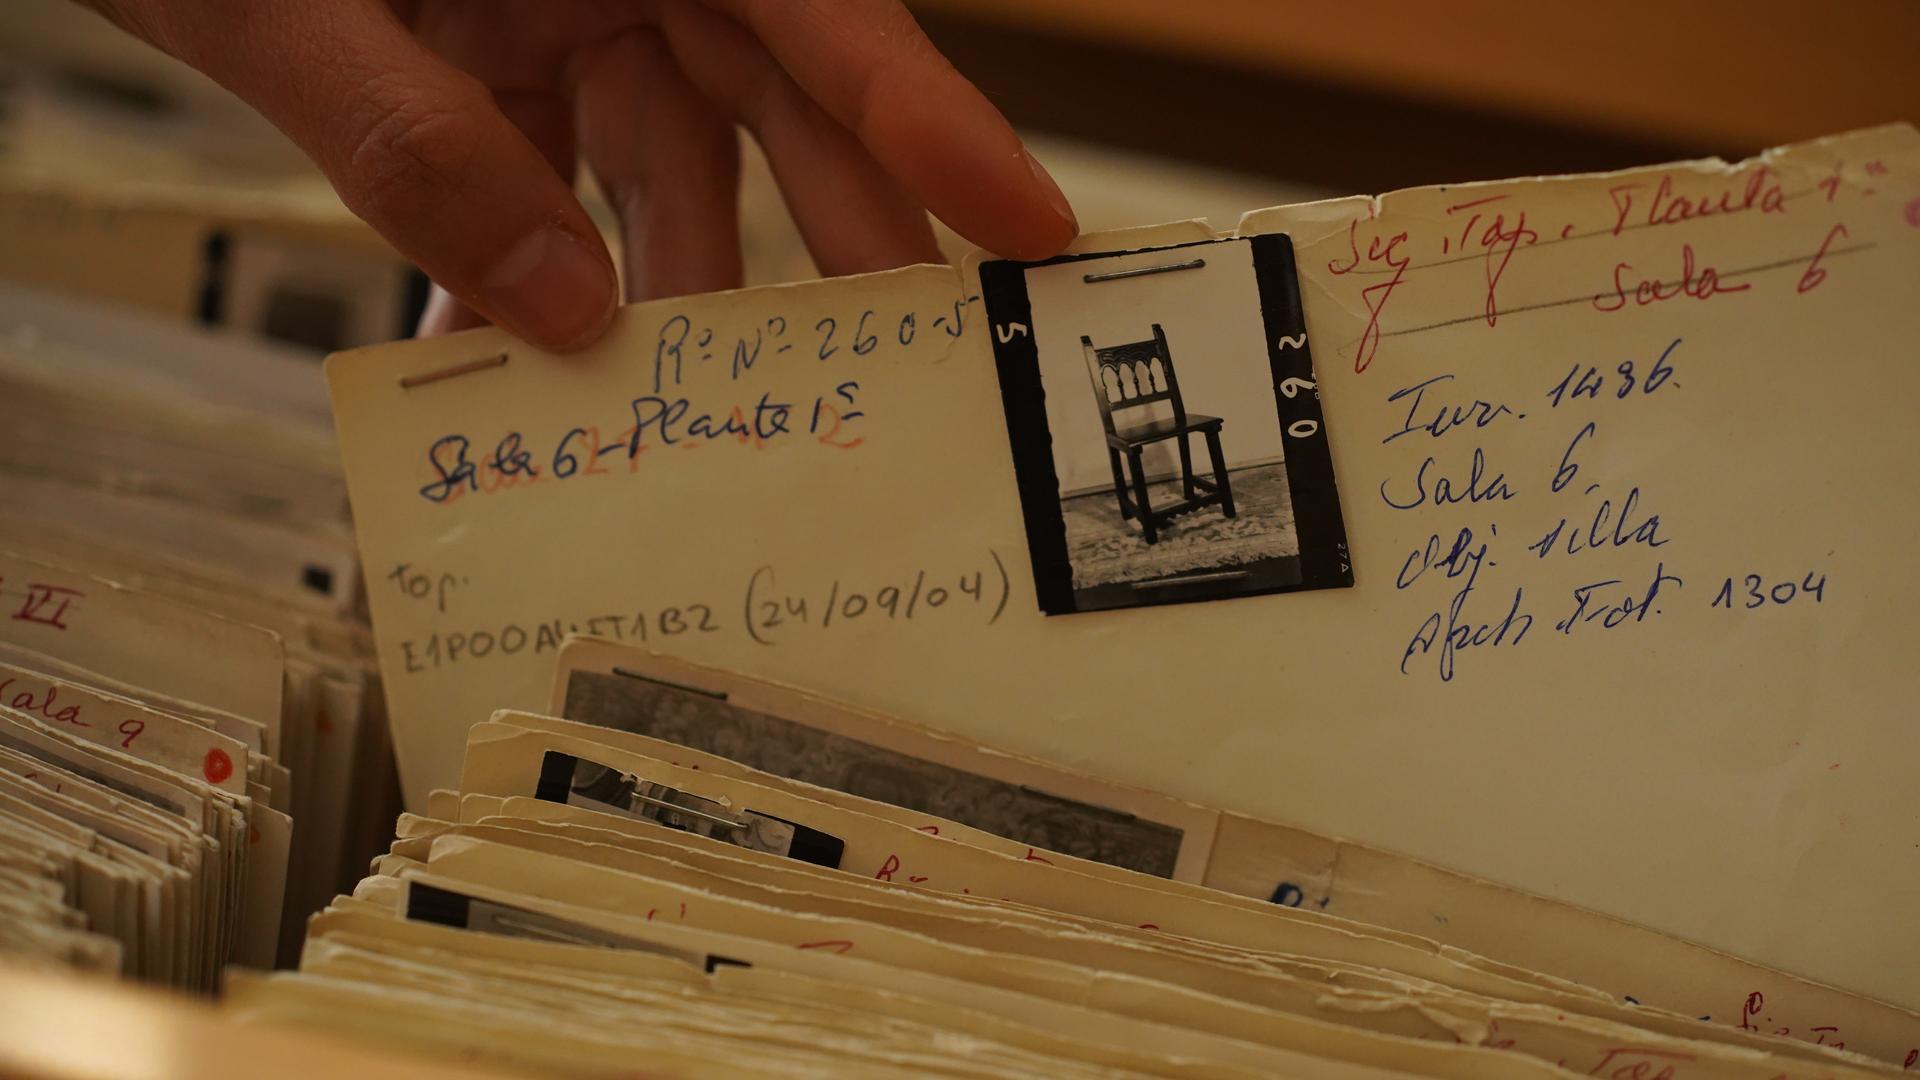 Rº Nº 260-5
Sala 6-Planta 1ª
Top.
(24/09/04)
5
260
27A
Sig. Top. Planta 1ª
Sala 6
Inv. 1436.
Sala 6
Obj. silla
Arch. Fot. 1304
VI
Sala 9